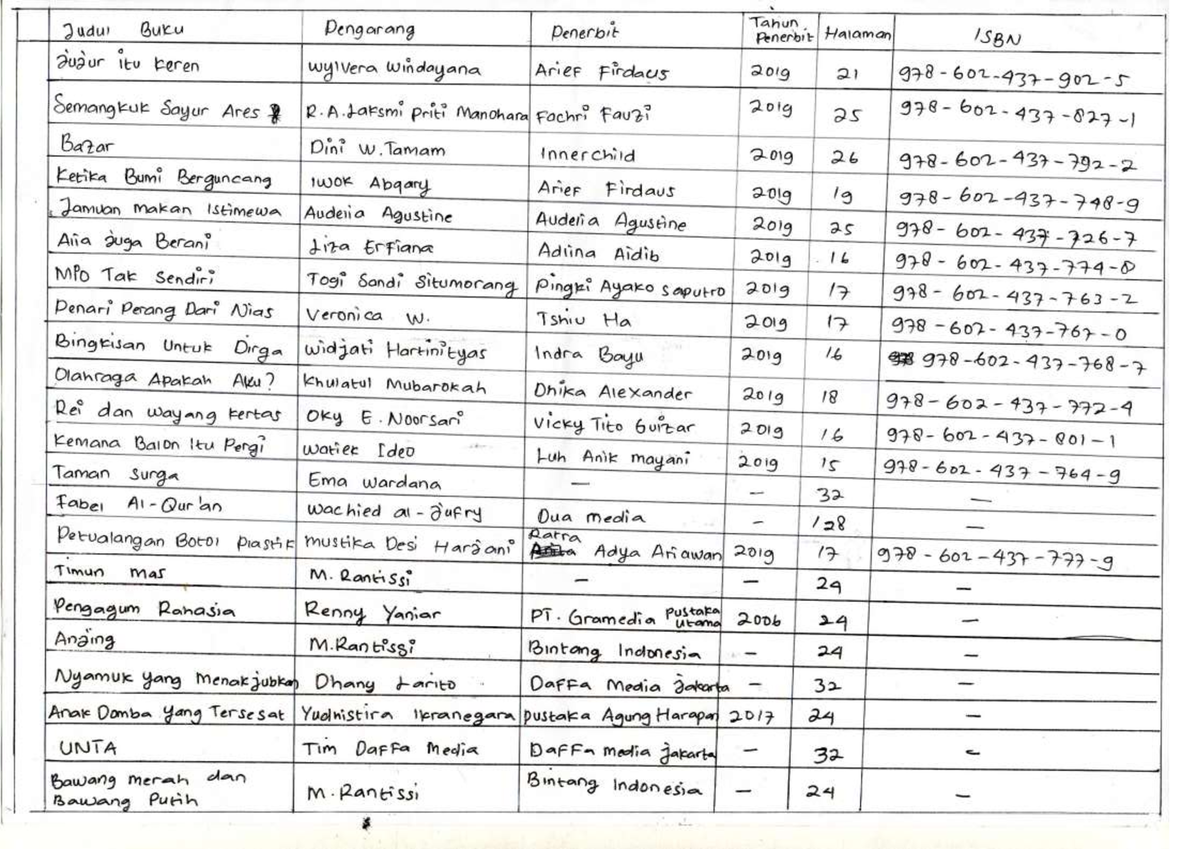 Judul Buku Pengarang Penerbit Tahun Penerbit Halaman ISBN
Jujur itu keren Wylvera Windayana Arief Firdaus 2019 21 978-602-437-902-5
Semangkuk Sayur Ares R.A. Laksmi Priti Manohara Fachri Fauzi 2019 25 978-602-437-827-1
Bazar Dini W. Tamam Innerchild 2019 26 978-602-437-792-2
Ketika Bumi Berguncang Iwok Abqary Arief Firdaus 2019 19 978-602-437-748-9
Jamuan makan Istimewa Audelia Agustine Audelia Agustine 2019 25 978-602-437-726-7
Alia Juga Berani Liza Erfiana Adlina Aidib 2019 16 978-602-437-774-8
MPO Tak Sendiri Togi Sandi Situmorang Pingki Ayako Saputro 2019 17 978-602-437-763-2
Penari Perang Dari Nias Veronica W. Tshiu Ha 2019 17 978-602-437-767-0
Bingkisan Untuk Dirga Widjati Hartinityas Indra Bayu 2019 16 978-602-437-768-7
Olahraga Apakah Aku? Khulatul Mubarokah Dhika Alexander 2019 18 978-602-437-772-4
Rei dan Wayang Kertas Oky E. Noorsari Vicky Tito Guitar 2019 16 978-602-437-801-1
Kemana Balon Itu Pergi Watiek Ideo Luh Anik mayani 2019 15 978-602-437-764-9
Taman Surga Ema Wardana — — 32 —
Fabel Al-Qur'an Wachied al-Jufry Dua media — 128 —
Petualangan Botol Plastik Mustika Desi Harjani Ratra Adya Ariawan 2019 17 978-602-437-777-9
Timun mas M. Rantissi — — 24 —
Pengagum Rahasia Renny Yaniar PT. Gramedia Pustaka Utama 2006 24 —
Anjing M. Rantissi Bintang Indonesia — 24 —
Nyamuk yang Menakjubkan Dhany Larito Daffa Media Jakarta — 32 —
Anak Domba Yang Tersesat Yudhistira Ikranegara Pustaka Agung Harapan 2017 24 —
UNTA Tim Daffa Media Daffa media Jakarta — 32 —
Bawang merah dan Bawang Putih M. Rantissi Bintang Indonesia — 24 —